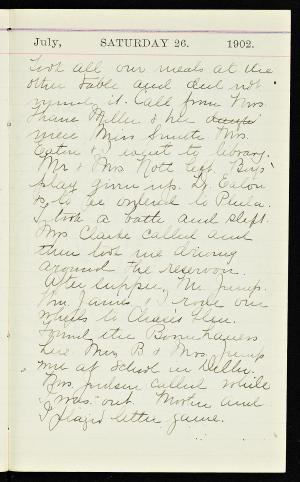 July, SATURDAY 26. 1902.
Took all our meals at the
other table and did not
mind it. Call from Mrs
Miller & her
niece Miss Mrs.
Eaton & I went to library.
Mr & Mrs Nott left. Boys'
play given up. Dr. Eaton
is to be ordered to
I took a bath and slept.
Mrs Clarke called and
then took me driving
around the reservoir.
After supper, Mr. Jump.
Wm. Jarvis & I rode our
wheels to Glen.
Found the
here. Mrs. B & Mrs. Jump
met at School in Delhi.
Mrs. Judson called while
I was out. Mother and
I played letter game.